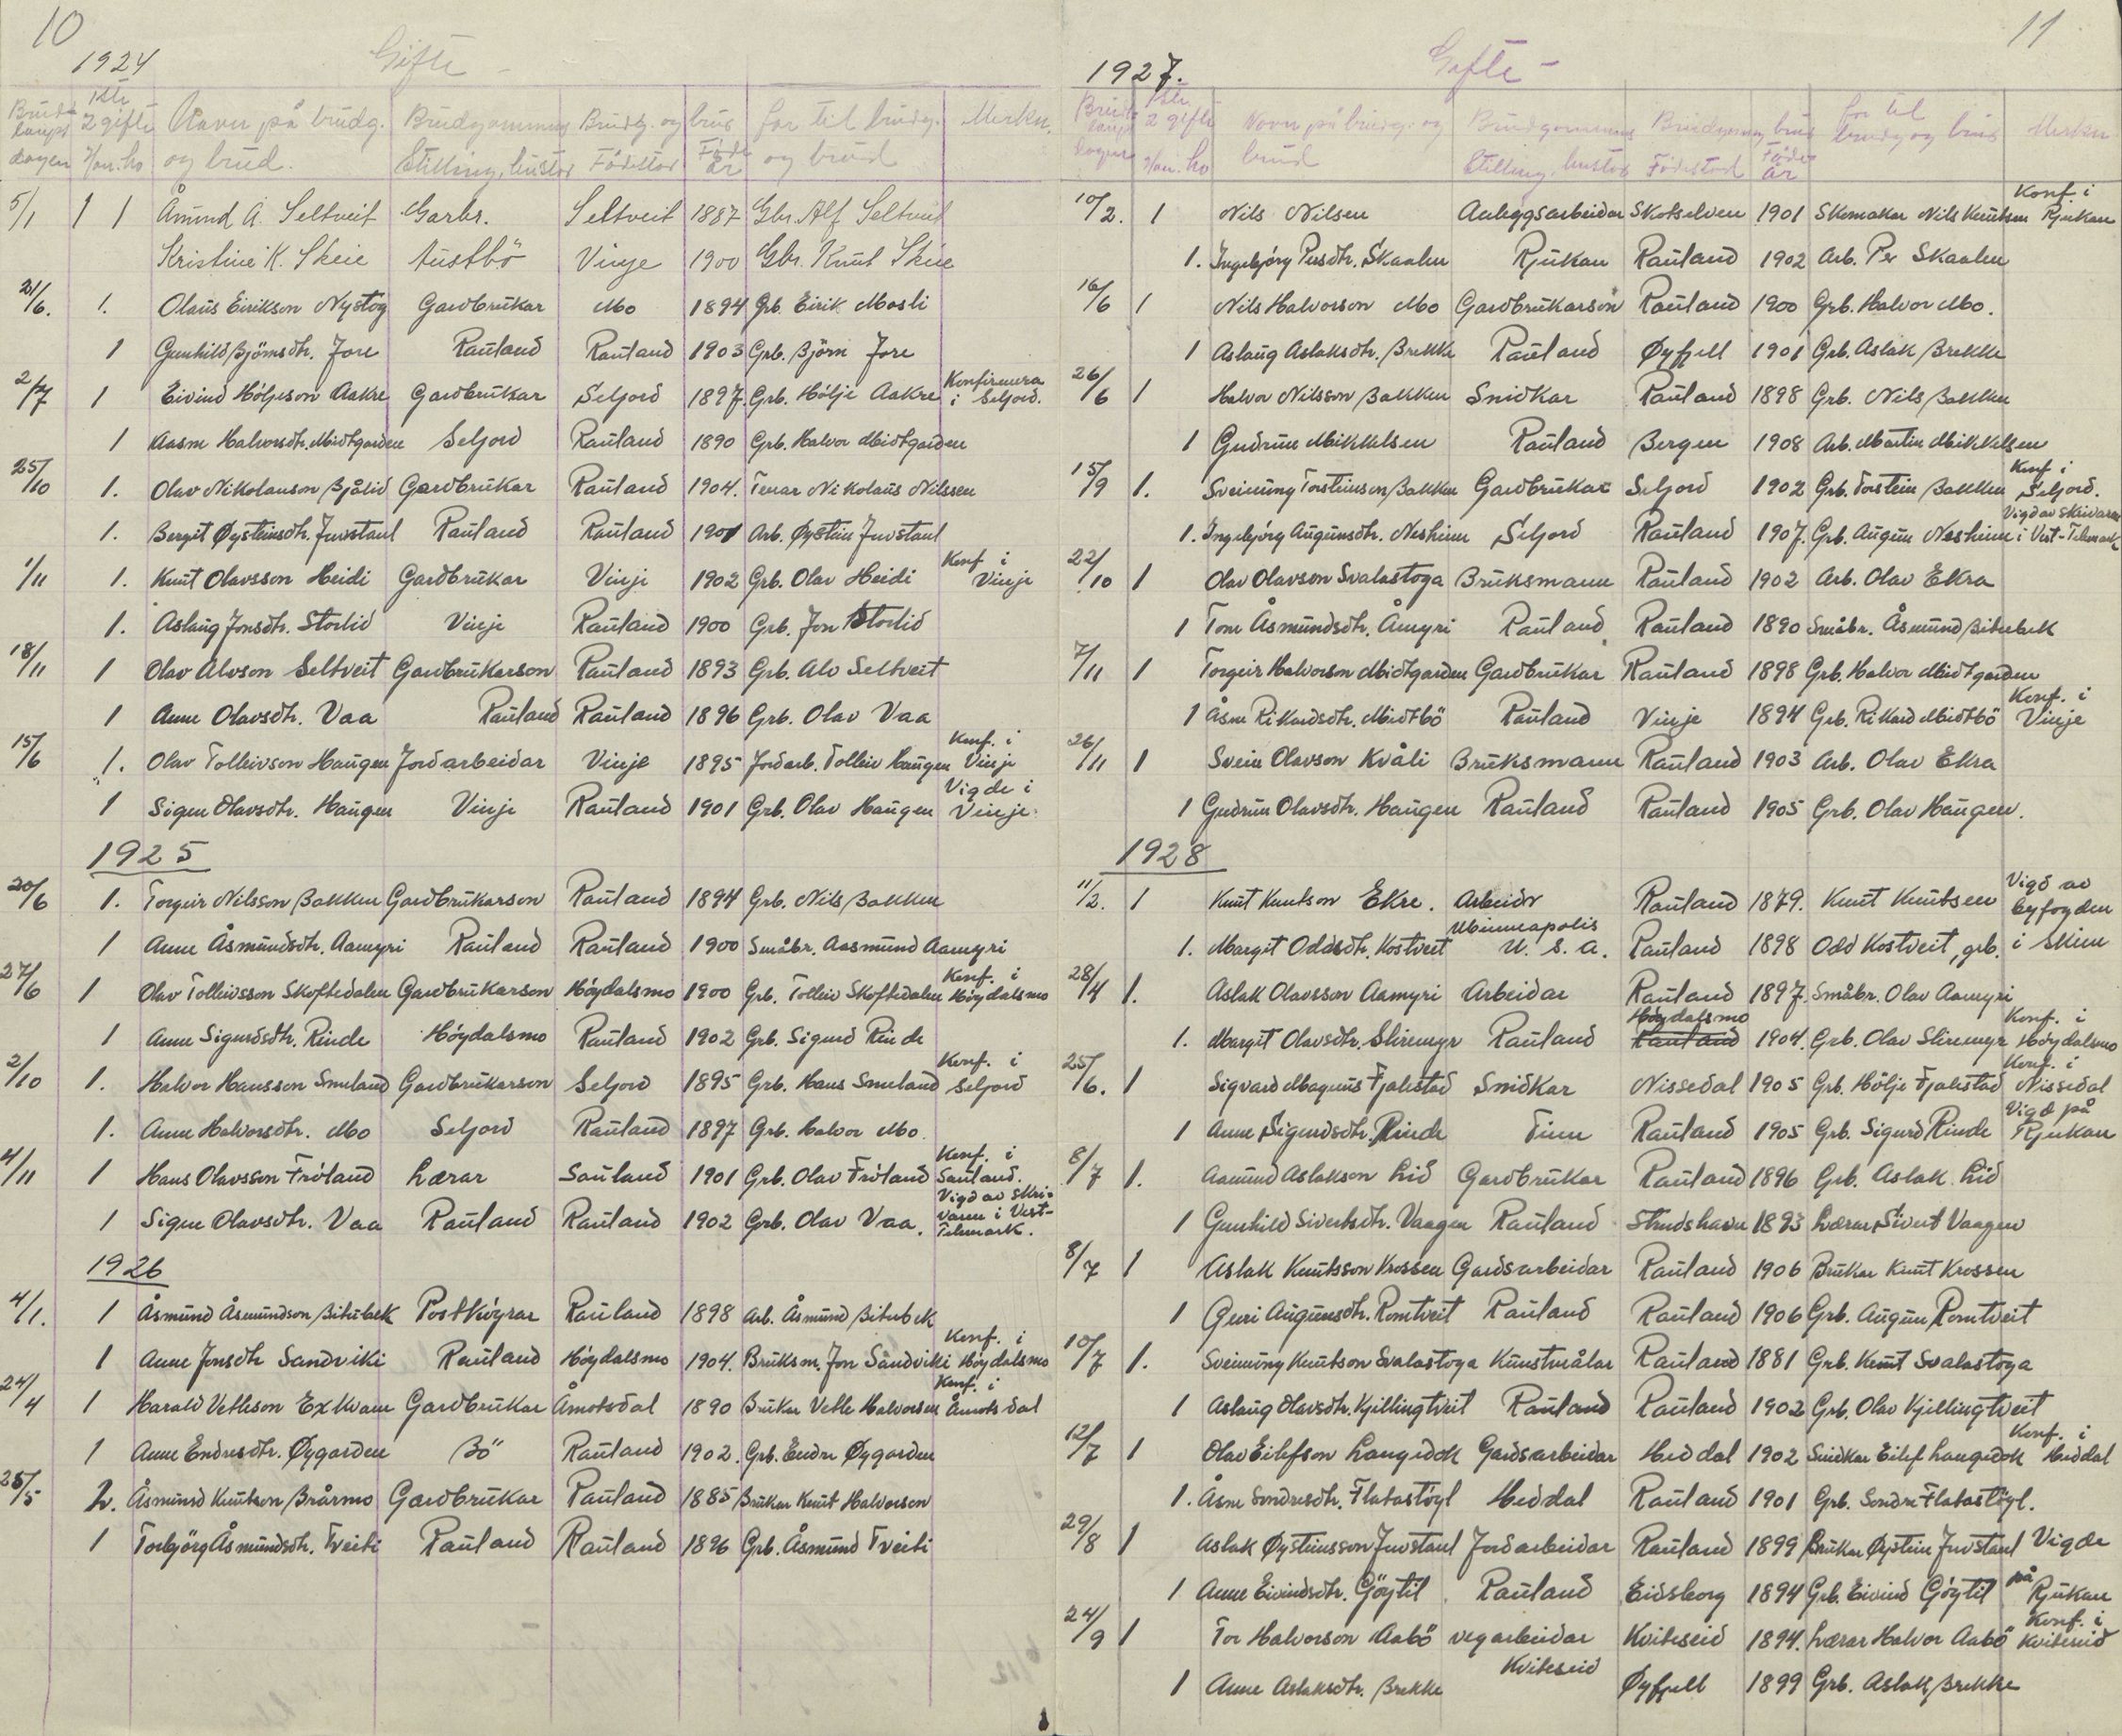 10
1924 Gifte -
Brudlaupsdagen 1ste 2 gifte Han. ho Navn på brudg. og brud. Brudgommens Stilling, bustad Brudg. og brur Fødestad Føde år far til brudg. og brud Merkn.
5/1 1 1 Åmund A. Seltveit Garbr. Seltveit 1887 Gbr. Alf Seltveit
Kristine K. Skeie Austbö Vinje 1900 Gbr. Knut Skeie
21/6. 1. Olaus Eirikson Nystog Gardbrukar Mo 1894 Gb. Eirik Mosli
1 Gunhild Björnsdtr. Jore Rauland Rauland 1903 Grb. Björn Jore
2/7 1 Eivind Höljeson Aakre Gardbrukar Seljord 1897. Grb. Hölje Aakre Konfirmera i Seljord.
1 Aasne Halvorsdtr. Midtgarden Seljord Rauland 1890 Grb. Halvor Midtgarden
25/10 1. Olav Nikolauson Bjålid Gardbrukar Rauland 1904. Nikolaus Nilssen
1. Bergit Øysteinsdtr. Juvstaul Rauland Rauland 1901 Arb. Øystein Juvstaul
1/11 1. Knut Olavsson Heidi Gardbrukar Vinje 1902 Grb. Olav Heidi Konf i Vinje
1. Aslaug Jonsdtr. Storlid Vinje Rauland 1900 Grb. Jon Storlid
18/11 1 Olav Alvson Seltveit Gardbrukarson Rauland 1893 Grb. Alv Seltveit
1 Anne Olavsdtr. Vaa Rauland Rauland 1896 Grb. Olav Vaa
15/6 1. Olav Tolleivson Haugen Jordarbeidar Vinje 1895 Jordarb. Tolleiv Haugen Konf. i Vinje
1 Signe Olavsdtr. Haugen Vinje Rauland 1901 Grb. Olav Haugen Vigde i Vinje
1925
20/6 1. Torgeir Nilsson Bakken Gardbrukarson Rauland 1894 Grb. Nils Bakken
1 Anne Åsmundsdtr. Aamyri Rauland Rauland 1900 Småbr. Aasmund Aamyri
27/6 1 Olav Tolleivsson Skoftedalen Gardbrukarson Höydalsmo 1900 Grb. Tolleiv Skoftedalen Konf. i Höydalsmo
1 Anne Sigurdsdtr. Rinde Höydalsmo Rauland 1902 Grb. Sigurd Rinde
2/10 1. Halvor Hansson Smeland Gardbrukarson Seljord 1895 Grb. Hans Smeland Konf. i Seljord
1. Anne Halvorsdtr. Mo Seljord Rauland 1897 Grb. Halvor Mo.
4/11 1 Hans Olavsson Fröland Lærar Sauland 1901 Grb. Olav Fröland Konf. i Sauland.
1 Signe Olavsdtr. Vaa Rauland Rauland 1902 Grb. Olav Vaa. Vigd av skrivaren i Vest-Telemark.
1926
4/1. 1 Åsmund Åsmundson Bitubek Postköyrar Rauland 1898 Arb. Åsmund Bitubek
1 Anne Jonsdtr Sandviki Rauland Höydalsmo 1904. Bruksm. Jon Sandviki Konf. i Höydalsmo
24/4 1 Harald Vetleson Gardbrukar Åmotsdal 1890 Brukar Vetle Halvorsen Konf. i Åmotsdal
1 Anne Endresdtr. Øygarden Bö Rauland 1902. Grb. Endre Øygarden
25/5 2. Åsmund Knutson Brårmo Gardbrukar Rauland 1885 Brukar Knut Halvorson
1 Torbjörg Åsmundsdtr. Tveiti Rauland Rauland 1896 Grb. Åsmund Tveiti
11
1927. Gifte -
Brudlaupsdagen 1ste 2 gifte Han. ho Navn på brudg. og brud Brudgommens Stilling, bustad Brudgom, brur Fødestad Føde år far til brudg. og brud Merkn.
10/2. 1 Nils Nilsen Anleggsarbeidar Skotselven 1901 Skomakar Nils Knutsen Konf. i Rjukan
1. Ingebjörg Persdtr. Skaalen Rjukan Rauland 1902 Arb. Per Skaalen
16/6 1 Nils Halvorson Mo Gardbrukarson Rauland 1900 Grb. Halvor Mo.
1 Aslaug Aslaksdtr. Brekke Rauland Øyfjell 1901 Grb. Aslak Brekke
26/6 1 Halvor Nilsson Bakken Snidkar Rauland 1898 Grb. Nils Bakken
1 Gudrun Mikkelsen Rauland Bergen 1908 Arb. Martin Mikkelsen
15/9 1. Sveinung Torsteinson Bakken Gardbrukar Seljord 1902 Grb. Torstein Bakken Konf i Seljord.
1. Ingebjörg Augunsdtr. Nesheim Seljord Rauland 1907. Grb. Augun Nesheim Vigd av skrivaren i Vest-Telemark
22/10 1 Olav Olavson Svalastoga Bruksmann Rauland 1902 Arb. Olav Ekra
1 Tone Åsmundsdtr. Åmyri Rauland Rauland 1890 Småbr. Åsmund Bitubek
7/11 1 Torgeir Halvorson Midtgarden Gardbrukar Rauland 1898 Grb. Halvor Midtgarden
1 Åsne Rikardsdtr. Midtbö Rauland Vinje 1894 Grb. Rikard Midtbö Konf. i Vinje
26/11 1 Svein Olavson Kvåli Bruksmann Rauland 1903 Arb. Olav Ekra
1 Gudrun Olavsdtr. Haugen Rauland Rauland 1905 Grb. Olav Haugen.
1928
11/2. 1 Knut Knutson Ekre. Arbeidr Rauland 1879. Knut Knutsen Vigd av byfogden
1. Margit Oddsdtr. Kostveit Minneapolis U. S. A. Rauland 1898 Odd Kostveit, grb. i Skien
28/4 1. Aslak Olavsson Aamyri Arbeidar Rauland 1897. Småbr. Olav Aamyri
1. Margit Olavsdtr. Sliremyr Rauland Höydalsmo Rauland 1904. Grb. Olav Sliremyr Konf. i Höydalsmo
25/6. 1 Sigvard Magnus Fjalestad Snidkar Nissedal 1905 Grb. Hölje Fjalestad Konf. i Nissedal
1 Anne Sigurdsdtr. Rinde Tinn Rauland 1905 Grb. Sigurd Rinde Vigd på Rjukan
8/7 1. Aamund Aslakson Lid Gardbrukar Rauland 1896 Grb. Aslak Lid
1 Gunhild Sivertsdtr. Vaagen Rauland Strudshavn 1893 Lærar Sivert Vaagen
8/7 1 Aslak Knutsson Krossen Gardsarbeidar Rauland 1906 Brukar Knut Krossen
1 Guri Augunsdtr. Romtveit Rauland Rauland 1906 Grb. Augun Romtveit
10/7 1. Sveinung Knutson Svalastoga Kunstmålar Rauland 1881 Grb. Knut Svalastoga
1 Aslaug Olavsdtr. Kjillingtveit Rauland Rauland 1902 Grb. Olav Kjillingtveit
12/7 1 Olav Eilefson Langidok Gardsarbeidar Heddal 1902 Snidkar Eilef Langidok Konf. i Heddal
1. Åsne Sondresdtr. Flatastöyl Heddal Rauland 1901 Grb. Sondre Flatastöyl.
29/8 1 Aslak Øysteinsson Juvstaul Jordarbeidar Rauland 1899 Brukar Øystein Juvstaul Vigde
1 Anne Eivindsdtr. Göytil Rauland Eidsborg 1894 Grb. Eivind Göytil på Rjukan
24/9 1 Tor Halvorson Aabö vegarbeidar Kviteseid 1894. Lærar Halvor Aabö Konf. i Kviteseid
1 Anne Aslaksdtr. Brekke Kviteseid Øyfjell 1899 Grb. Aslak Brekke